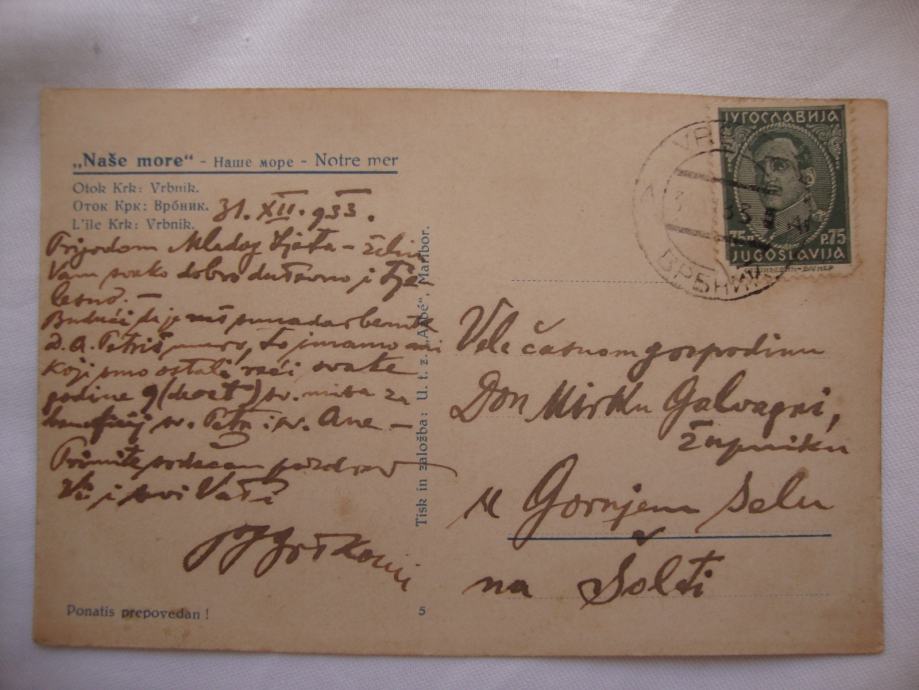 „Naše more“ - Наше море - Notre mer
Otok Krk: Vrbnik.
Оток Крк: Врбник.
L'ile Krk: Vrbnik.
31. XII. 933.
Prigodom Mladog ljeta - želim
Vam svako dobro duševno i tje-
lesno. -
Budući da je naš
to imamo mi
koji smo ostali reći svake
godine 9 (devet) sv. misa za
sv. Petra i sv. Ane -
Primite srdačan pozdrav
Vi i svi Vaši
Ponatis prepovedan!
Tisk in založba: U. t. z. Maribor.
5
ЈУГОСЛАВИЈА
75 P. 75
JUGOSLAVIJA
ВРБНИК
Vele časnom gospodinu
Don Mirku Galvagni,
župniku
u Gornjem Selu
na Šolti